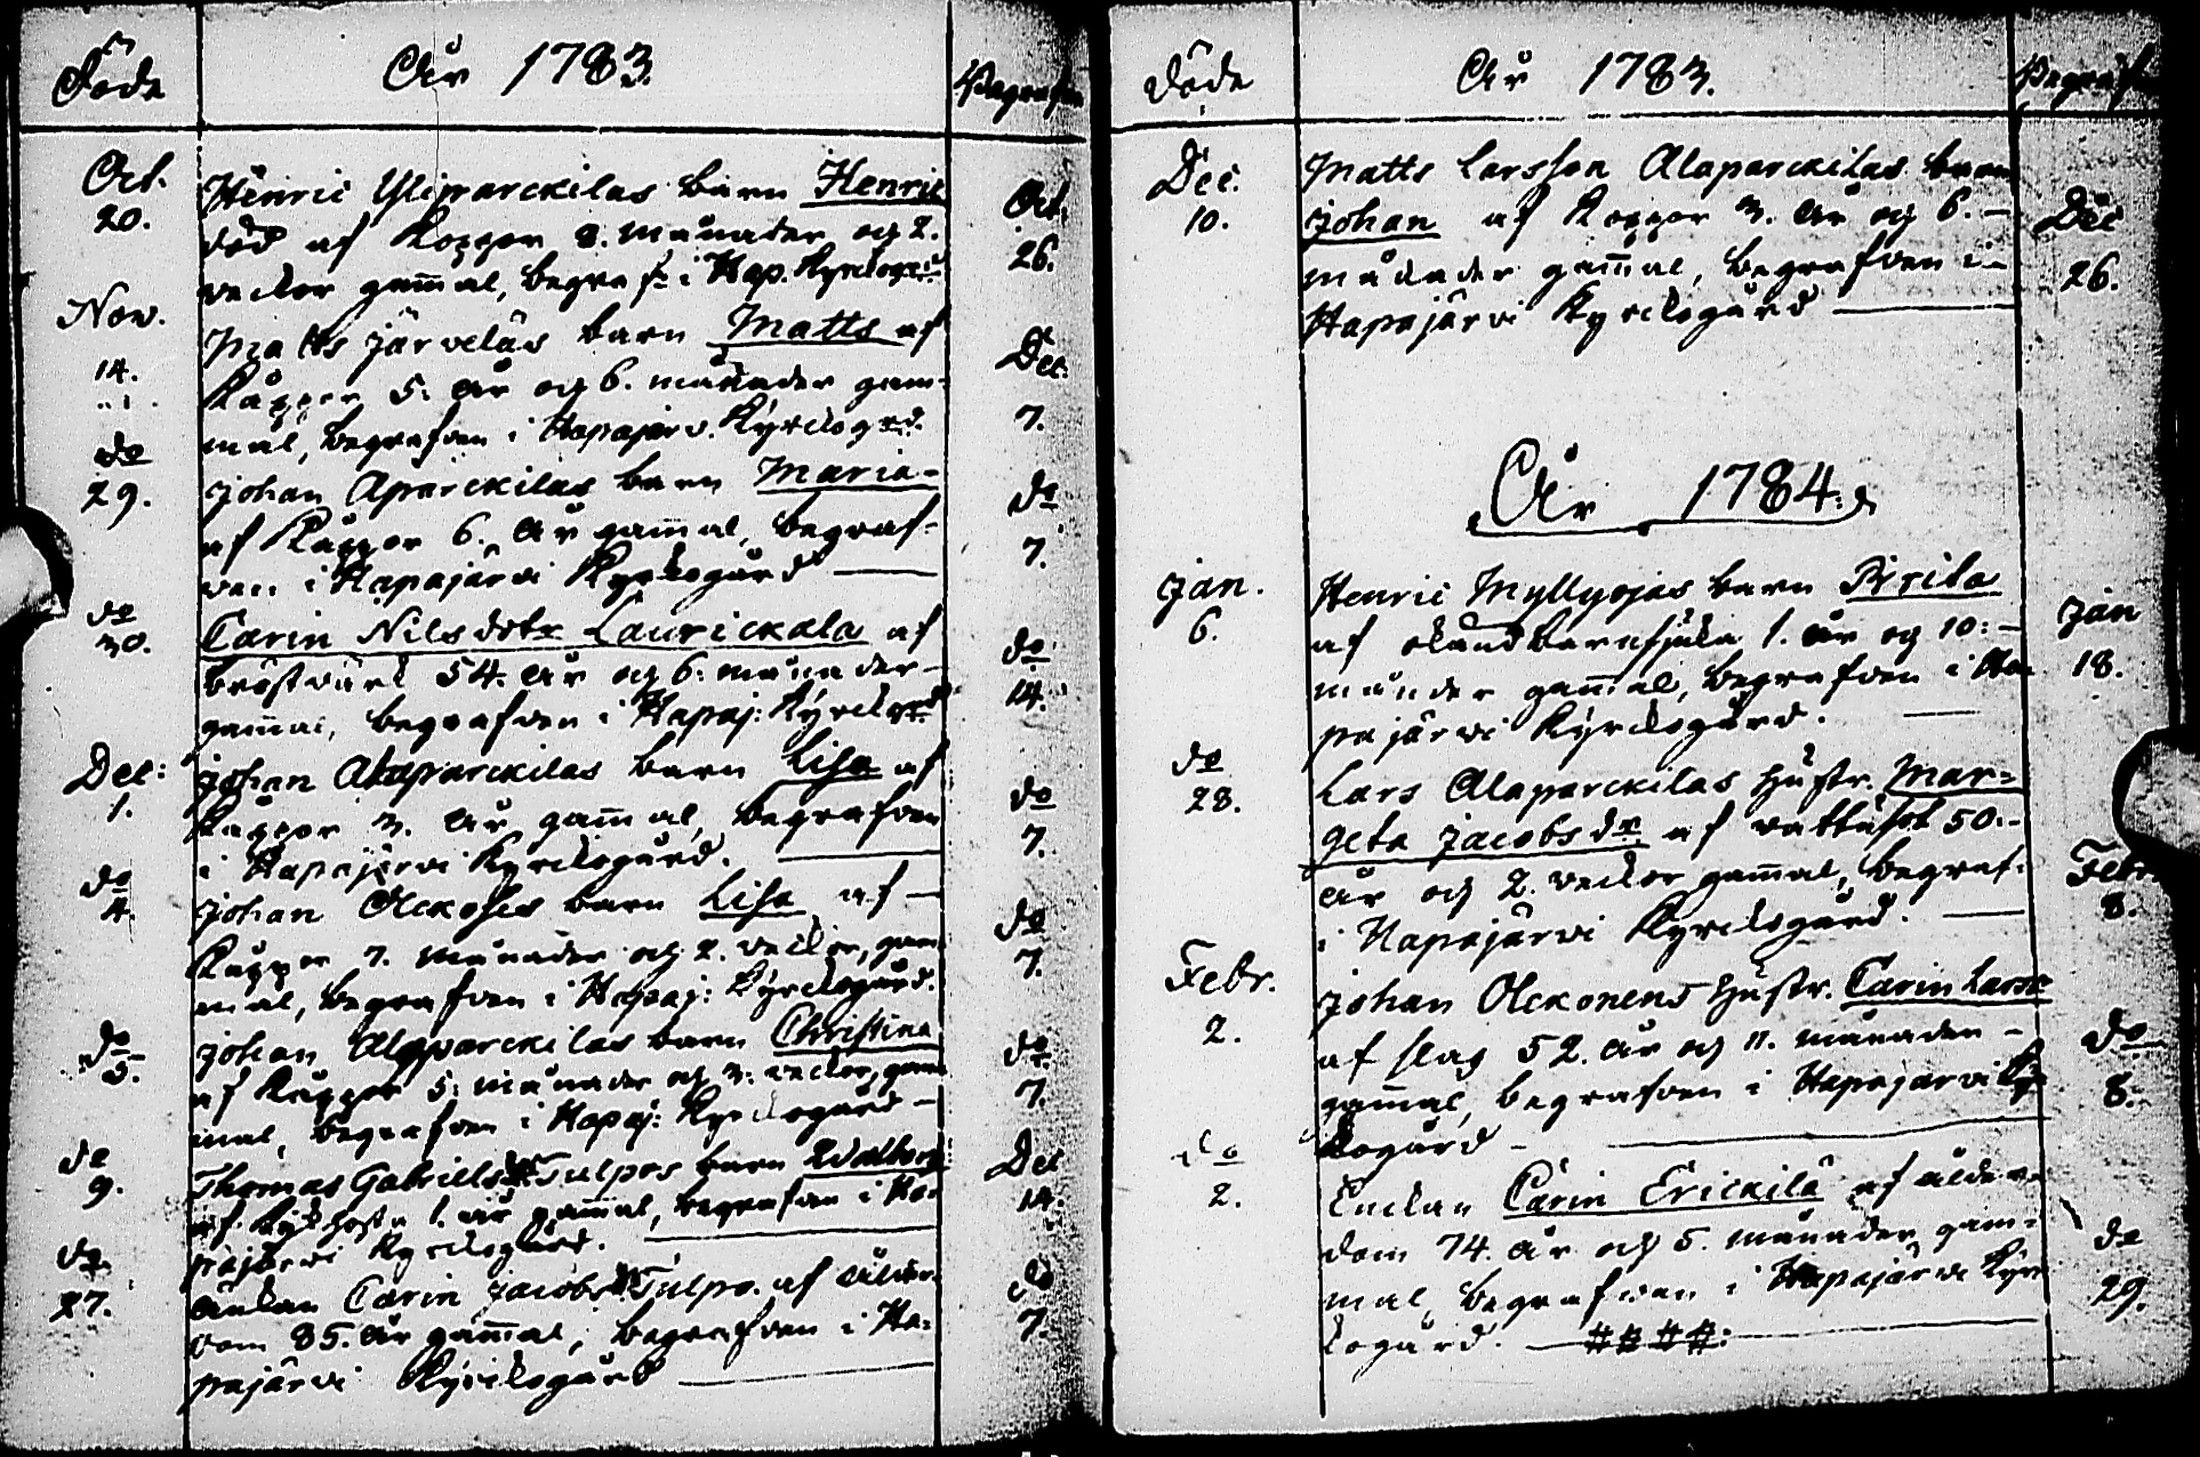 Döde
År 1783.
Begrafne
Oct. 20.
Henric Yliparckilas barn Henric
död af Koppor 8. månader och 2.
veckor gam̄al, begraf: i Hap. Kyrckogrd
Oct. 26.
Nov. 14.
Matts Järveläs barn Matts af
Kåppor 5. år och 6. månader gam-
mal, begrafven i Hapajärv. Kyrckogrd.
Dec. 7.
do 29.
Johan Aparckilas barn Maria-
af Kåppor 6. år gam̄al, begraf-
ven i Hapajärvi Kyrckogård
do 7.
do 30.
Carin Nilsdotr Laurickala af
bröstvärk 54. år och 6. månader-
gam̄al, begrafven i Hapaj: Kyrckogrd
do 14.
Dec: 1.
Johan Alaparckilas barn Lisa af
Kåppor 3. år gam̄al, begrafven
i Hapajärvi Kyrckogård.
do 7.
do 4.
Johan barn Lisa af-
Kåppor 7. månader och 2. veckor, gam
mal, begrafven i Hapaj: Kyrckogård.
do 7.
do 5.
Johan Alaparckilas barn Christina
af Kåppor 5. månader och 3. veckor, gam
mal, begrafven i Hapaj: Kyrckogård-
do 7.
do 9.
Thomas Gabrielss Tulpos barn Walborg
af Kikhosta 1. år gam̄al, begrafven i Ha-
pajärvi Kyrckogård.
Dec 14.
do 27.
Änkan Carin Jacobsdr Tulpo. af ålder-
dom 85. år gam̄al, begrafven i Ha-
pajärvi Kyrckogård
do 7.
Döde
År 1783.
Begrafne
Dec. 10.
Matts Larsson Alaparckilas barn
Johan af Koppor 3. år och 6.-
månader gam̄al, begrafven i-
Hapajärvi Kyrckogård
Dec 26.
År 1784.
Jan. 6.
Henric Myllyojas barn Brita
af okänd barnsjuka 1. år och 10:-
månder gam̄al, begrafven i Ha
pajärvi Kyrckogård.
Jan 18.
do 28.
Lars Alaparckilas hustr. Mar-
geta Jacobsdr af vattusot 50.-
år och 2. veckor gam̄al, begraf-
i Hapajärvi Kyrckogård.
Febr. 8.
Febr. 2.
Johan Olckonens hustr. Carin Larsdr
af slag 52. år och 11. månader-
gam̄al, begrafven i Hapajärvi Kyr
kogård-
do 8.
do 2.
Enckan Carin Erickilä af ålder-
dom 74. år och 5. månader gam-
mal, begrafven i Hapajärvi Kyr
kogård. - # # # #:
do 29.